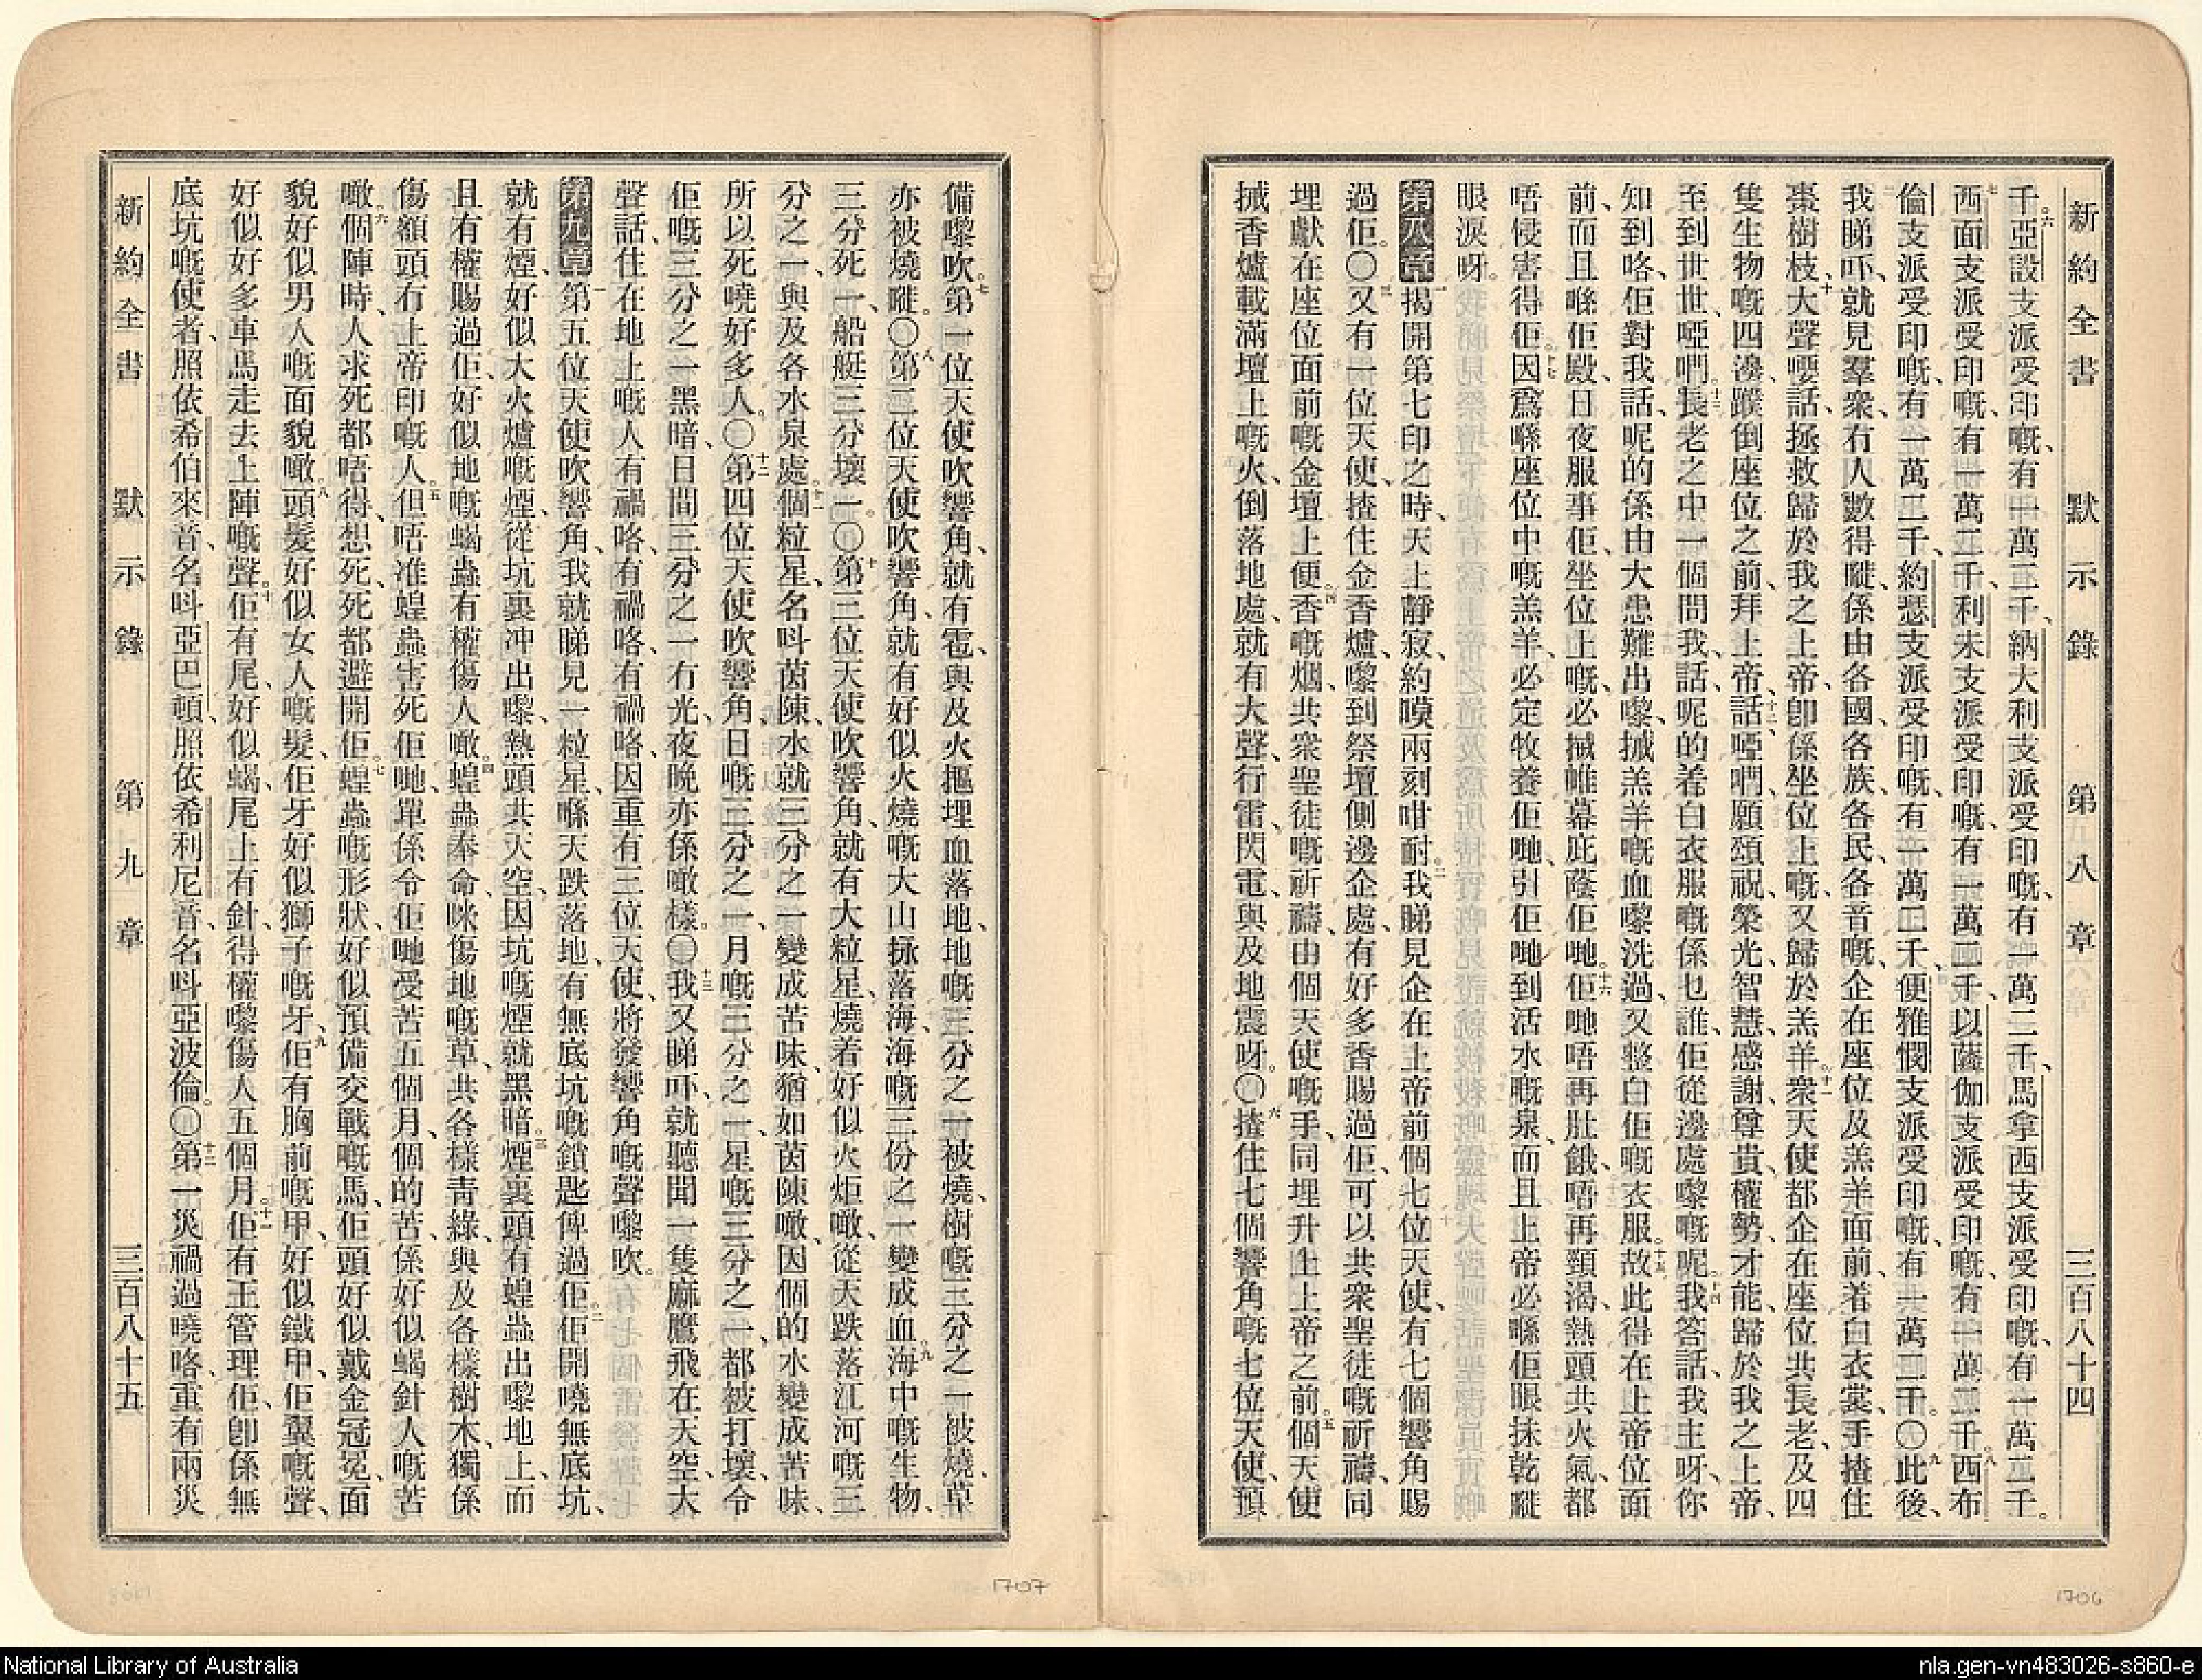 新約全書 默示錄 第八章 三百八十四
千。六亞設支派受印嘅、有一萬二千、納大利支派受印嘅、有一萬二千、馬拿西支派受印嘅、有一萬二千。
七西面支派受印嘅、有一萬二千、利未支派受印嘅、有一萬二千、以薩伽支派受印嘅、有一萬二千。八西布
倫支派受印嘅、有一萬二千、約瑟支派受印嘅、有一萬二千、便雅憫支派受印嘅、有一萬二千。〇九此後、
我睇吓、就見羣衆、冇人數得嚨、係由各國、各族、各民、各音嘅、企在座位及羔羊面前、着白衣裳、手揸住
棗樹枝、十大聲嗌話、拯救歸於我之上帝、卽係坐位上嘅、又歸於羔羊。十一衆天使都企在座位共長老、及四
隻生物嘅四邊、蹼倒座位之前、拜上帝、十二話、啞們、願頌祝、榮光、智慧、感謝、尊貴、權勢、才能、歸於我之上帝、
至到世世、啞們。十三長老之中一個問我話、呢的着白衣服嘅係乜誰、佢從邊處嚟嘅呢。十四我答話、我主呀、你
知到咯、佢對我話、呢的係由大患難出嚟、搣羔羊嘅血嚟洗過、又整白佢嘅衣服。十五故此得在上帝位面
前、而且喺佢殿、日夜服事佢、坐位上嘅、必搣帷幕庇蔭佢哋。十六佢哋唔再肚餓、唔再頸渴、熱頭共火氣、都
唔侵害得佢。十七因爲喺座位中嘅羔羊、必定牧養佢哋、引佢哋到活水嘅泉、而且上帝必喺佢眼抹乾嚨
眼淚呀。
第八章 一揭開第七印之時、天上靜寂、約嘆兩刻咁耐。二我睇見企在上帝前個七位天使、有七個響角賜
過佢。〇三又有一位天使、揸住金香爐、嚟到祭壇側邊企處、有好多香賜過佢、可以共衆聖徒嘅祈禱、同
埋獻在座位面前嘅金壇上便。四香嘅烟、共衆聖徒嘅祈禱、由個天使嘅手、同埋升上上帝之前。五個天使
搣香爐載滿壇上嘅火、倒落地處、就有大聲、行雷、閃電、與及地震呀。〇六揸住七個響角嘅七位天使、預
備嚟吹。七第一位天使吹響角、就有雹、與及火摳埋血落地、地嘅三分之一被燒、樹嘅三分之一被燒、草
亦被燒嚨。〇八第二位天使吹響角、就有好似火燒嘅大山掁落海、海嘅三份之一變成血。九海中嘅生物、
三分死一、船艇三分壞一。〇十第三位天使吹響角、就有大粒星、燒着好似火炬噉、從天跌落江河嘅三
分之一、與及各水泉處。十一個粒星、名呌茵陳、水就三分之一變成苦味、猶如茵陳噉、因個的水變成苦味、
所以死嘵好多人。〇十二第四位天使吹響角、日嘅三分之一、月嘅三分之一、星嘅三分之一、都被打壞、令
佢嘅三分之一黑暗、日間三分之一冇光、夜晚亦係噉樣。〇十三我又睇吓、就聽聞一隻麻鷹飛在天空、大
聲話、住在地上嘅人有禍咯、有禍咯、有禍咯、因重有三位天使、將發響角嘅聲嚟吹。
第九章 一第五位天使吹響角、我就睇見一粒星、喺天跌落地、有無底坑嘅鎖匙俾過佢。二佢開嘵無底坑、
就有煙、好似大火爐嘅煙、從坑裏冲出嚟、熱頭共天空、因坑嘅煙就黑暗。三煙裏頭有蝗蟲出嚟地上、而
且有權賜過佢、好似地嘅蝎蟲有權傷人噉。四蝗蟲奉命、咪傷地嘅草、共各樣青綠、與及各樣樹木、獨係
傷額頭冇上帝印嘅人。五但唔准蝗蟲害死佢哋、單係令佢哋受苦五個月、個的苦、係好似蝎針人嘅苦
噉。六個陣時、人求死都唔得、想死、死都避開佢。七蝗蟲嘅形狀、好似預備交戰嘅馬、佢頭好似戴金冠冕、面
貌好似男人嘅面貌噉。八頭髮好似女人嘅髮、佢牙好似獅子嘅牙、九佢有胸前嘅甲、好似鐵甲、佢翼嘅聲、
好似好多車馬走去上陣嘅聲。十佢有尾、好似蝎、尾上有針、得權嚟傷人五個月。十一佢有王管理佢、卽係無
底坑嘅使者、照依希伯來音、名呌亞巴頓、照依希利尼音、名呌亞波倫。〇十二第一災禍過嘵咯、重有兩災
新約全書 默示錄 第九章 三百八十五
1707
1706
National Library of Australia
nla.gen-vn483026-s860-e